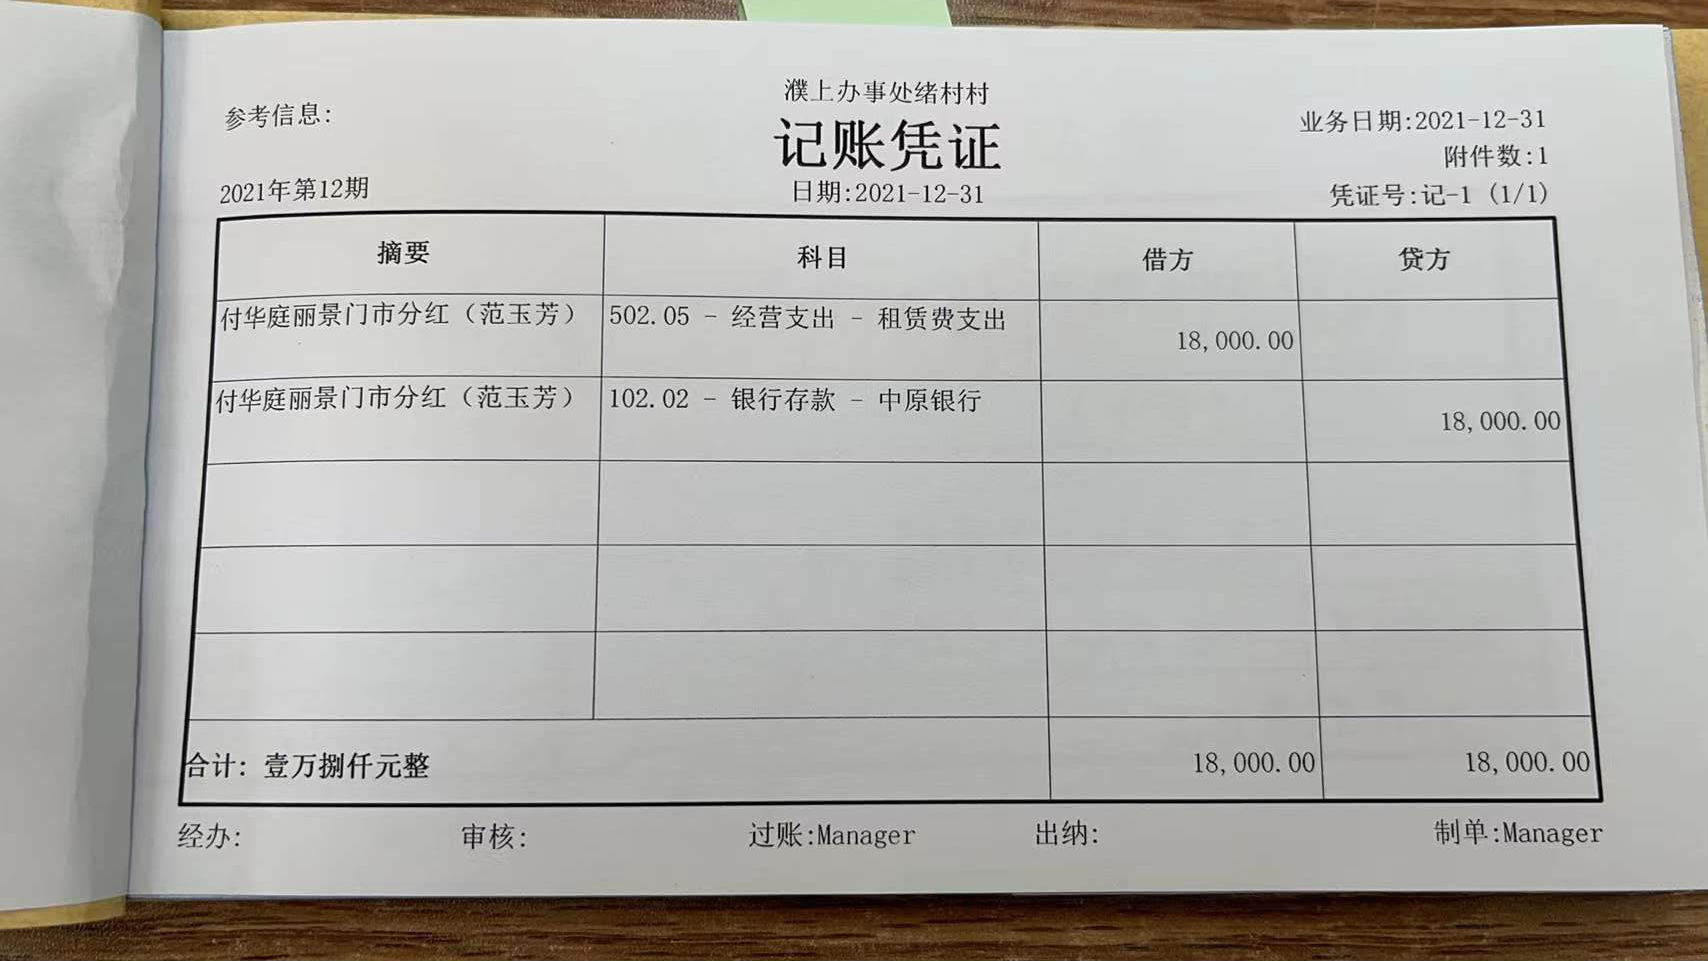 濮上办事处绪村村
参考信息:
记账凭证
业务日期:2021-12-31
附件数:1
2021年第12期
日期:2021-12-31
凭证号:记-1 (1/1)
摘要 科目 借方 贷方
付华庭丽景门市分红（范玉芳） 502.05 - 经营支出 - 租赁费支出 18,000.00
付华庭丽景门市分红（范玉芳） 102.02 - 银行存款 - 中原银行 18,000.00
合计: 壹万捌仟元整 18,000.00 18,000.00
经办: 审核: 过账:Manager 出纳: 制单:Manager